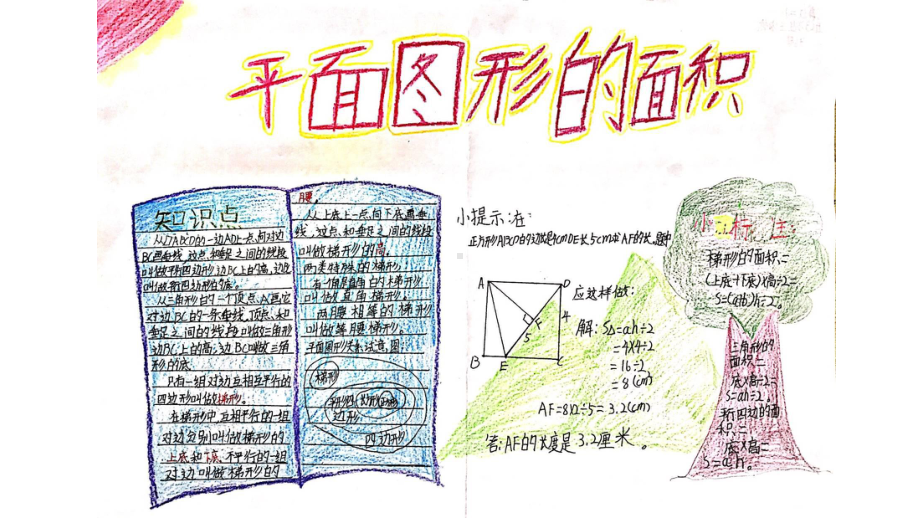 平面图形的面积
知识点
从▱ABCD的一边AD上一点向对边
BC画垂线,这点和垂足之间的线段
叫做平行四边形边BC上的高,边BC
叫做平行四边形的底。
从三角形的一个顶点A向它
对边BC的一条垂线,顶点和
垂足之间的线段叫做三角形
边BC上的高,边BC叫做三角
形的底。
只有一组对边互相平行的
四边形叫做梯形。
在梯形中互相平行的一组
对边分别叫做梯形的
上底和下底,不平行的一组
对边叫做梯形的
腰。
从上底上一点向下底画垂
线,这点和垂足之间的线段
叫做梯形的高。
两类特殊的梯形
有一个角是直角的梯形
叫做直角梯形。
两腰相等的梯形
叫做等腰梯形。
平面图形关系示意图
梯形
边形
四边形
小提示:在:
正方形ABCD的边长是4cm DE长5cm求AF的长
A
D
F
5
4
B
E
C
应这样做:
解:S△=ah÷2
=4×4÷2
=16÷2
=8(cm)
AF=8×2÷5=3.2(cm)
答:AF的长度是3.2厘米。
小 标 注
梯形的面积=
(上底+下底)×高÷2
S=(a+b)h÷2
三角形的
面积=
底×高÷2
S=ah÷2
底×高
S=ah